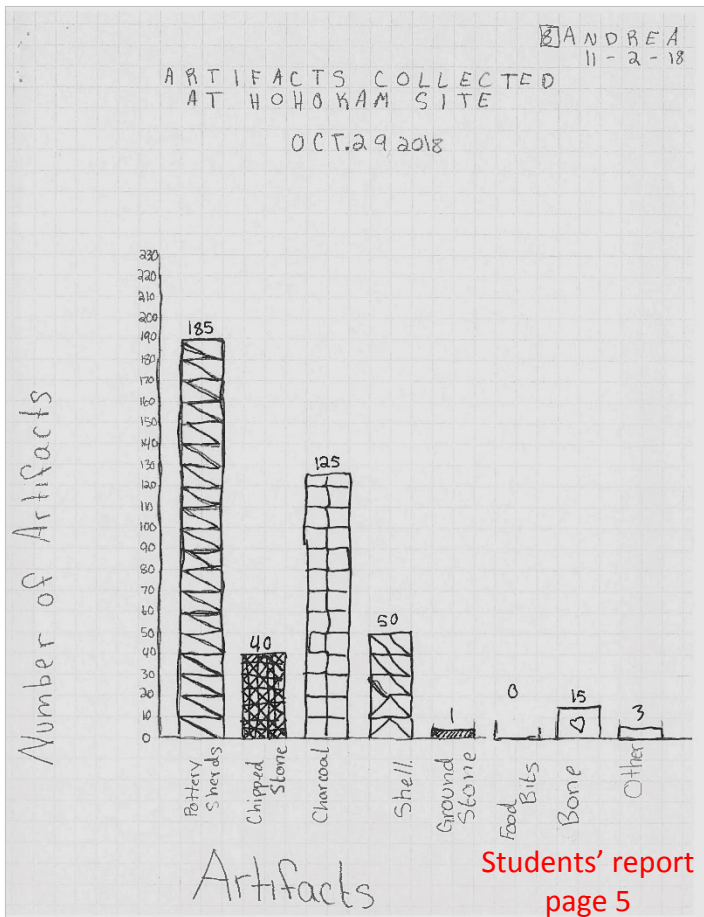 8 ANDREA
11-2-18
ARTIFACTS COLLECTED
AT HOHOKAM SITE
OCT.29 2018
Number of Artifacts
230
220
210
200
190
180
170
160
150
140
130
120
110
100
90
80
70
60
50
40
30
20
10
0
185
40
125
50
1
0
15
3
Pottery
Sherds
Chipped
Stone
Charcoal
Shell.
Ground
Stone
Food
Bits
Bone
Other
Artifacts
Students' report
page 5